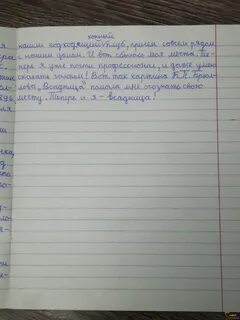 конный
нашли подходящий клуб, причём совсем рядом
с нашим домом. И вот сбылась моя мечта. Те-
перь я уже почти профессионал, и даже умею
скакать галопом! Вот так картина К.П. Брюл-
лова „Всадница" помогла мне осознать свою
мечту. Теперь и я - всадница!